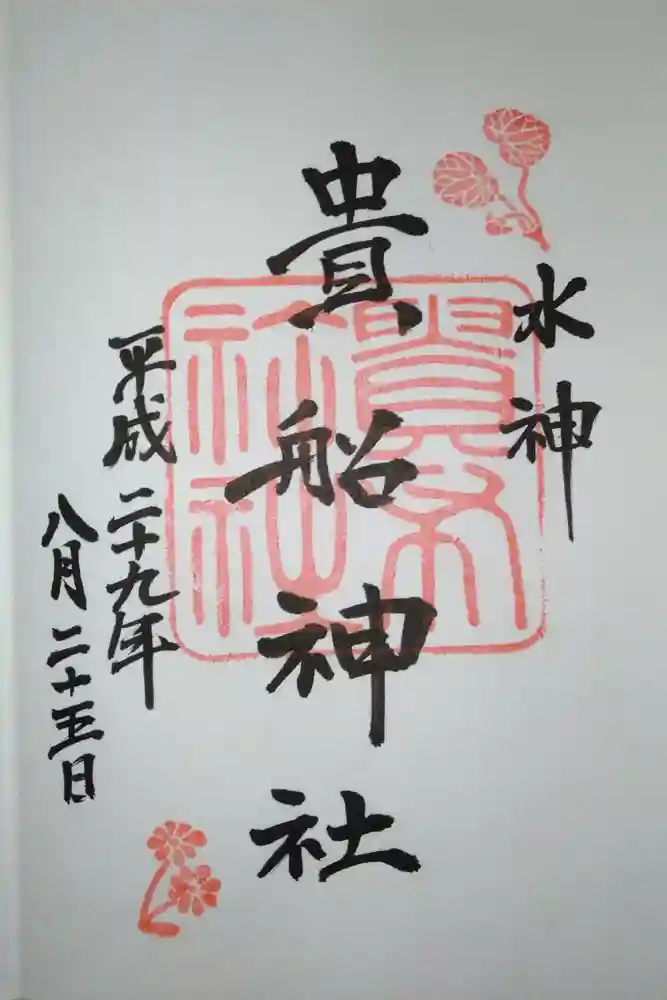 水神
貴船神社
平成二十九年
八月二十五日